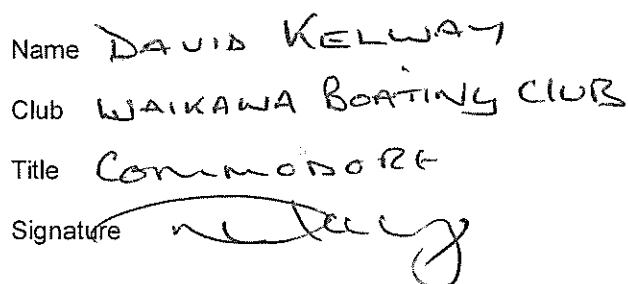 Name DAVID KELWAY
Club WAIKAWA BOATING CLUB
Title COMMODORE
Signature